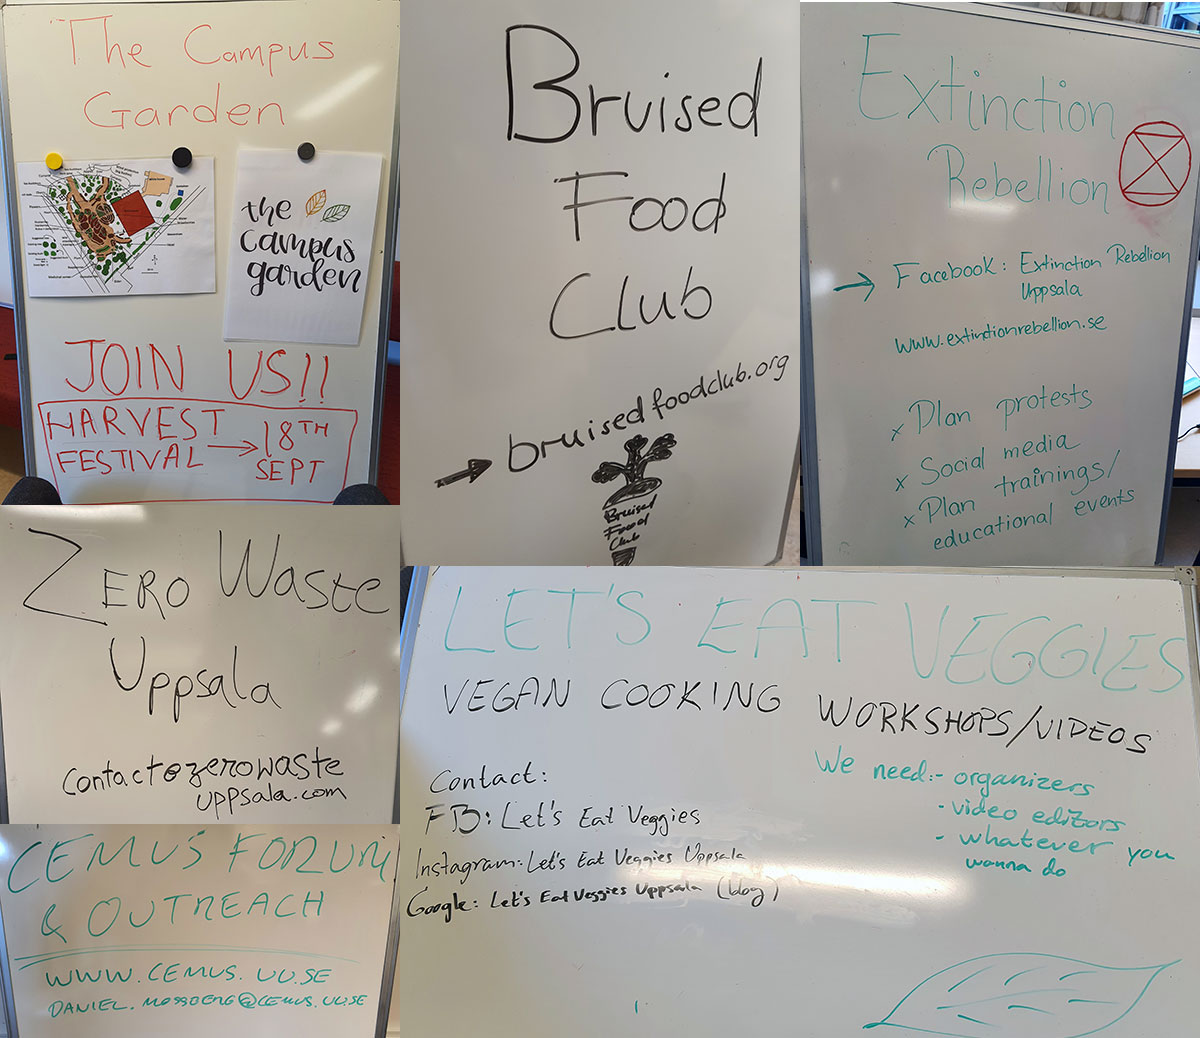 The Campus
Garden
the
campus
garden
JOIN US!!
HARVEST → 18TH
FESTIVAL SEPT
Bruised
Food
Club
→ bruisedfoodclub.org
Bruised
Food
Club
Extinction
Rebellion
→ Facebook: Extinction Rebellion
Uppsala
www.extinctionrebellion.se
x Plan protests
x Social media
x Plan trainings/
educational events
ZERO Waste
Uppsala
contact@zerowaste
uppsala.com
LET'S EAT VEGGIES
VEGAN COOKING WORKSHOPS/VIDEOS
We need:- organizers
- video editors
- whatever you
wanna do
Contact:
FB: Let's Eat Veggies
Instagram: Let's Eat Veggies Uppsala
Google: Let's Eat Veggies Uppsala (blog)
CEMUS FORUM
& OUTREACH
WWW.CEMUS.UU.SE
DANIEL.MOSSBERG@CEMUS.UU.SE